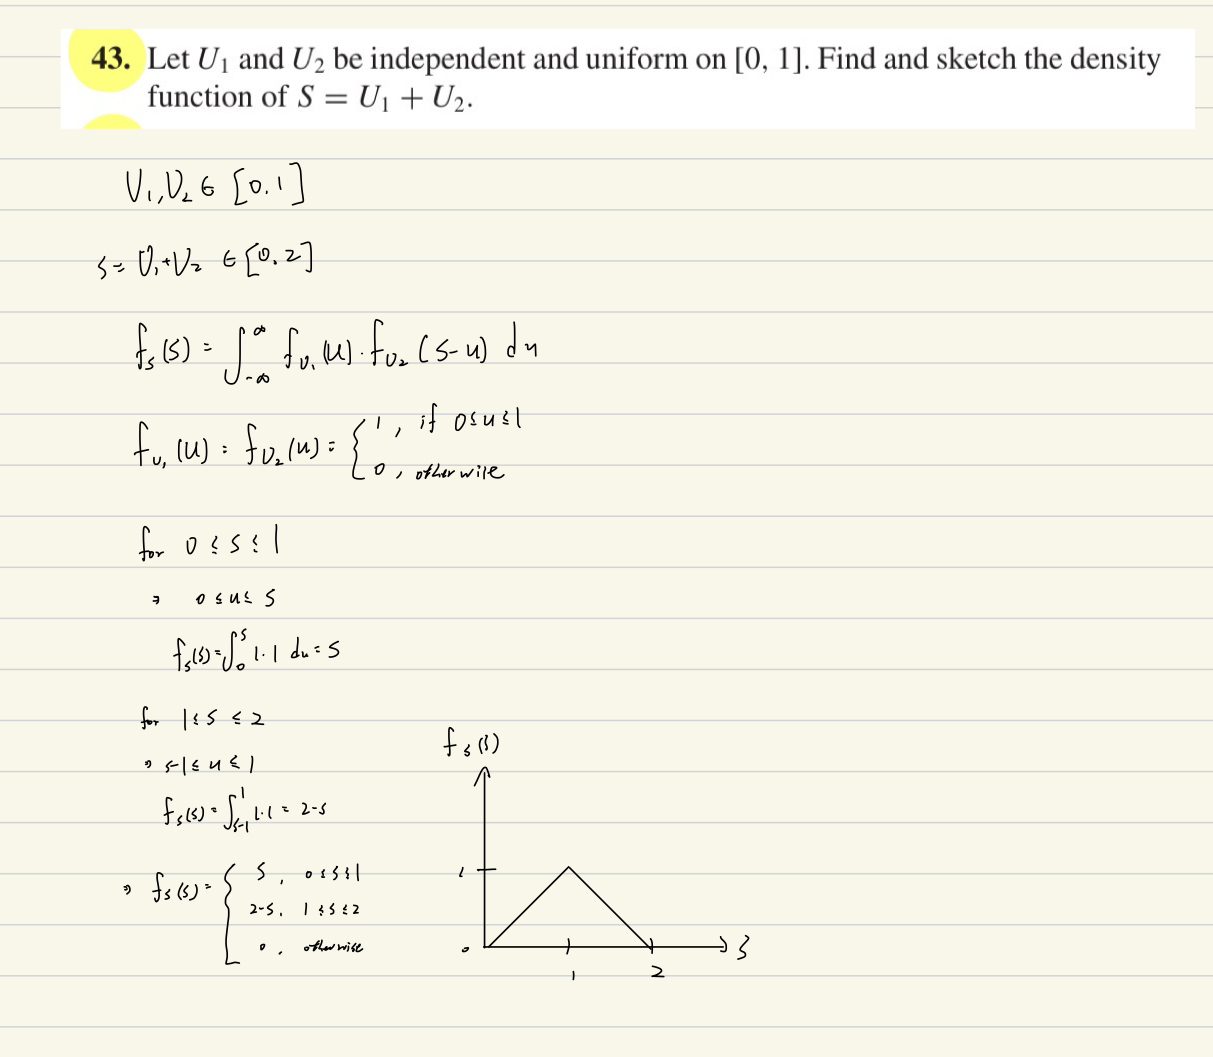 43. Let U₁ and U₂ be independent and uniform on [0, 1]. Find and sketch the density
function of S = U₁ + U₂.
U₁,U₂ ∈ [0.1]
S = U₁+U₂ ∈ [0.2]
fₛ(s) = ∫_{-∞}^{∞} f_{U₁}(u)·f_{U₂}(s-u) du
f_{U₁}(u) = f_{U₂}(u) = { 1, if 0≤u≤1
0, otherwise
for 0 ≤ s ≤ 1
⇒ 0 ≤ u ≤ s
fₛ(s) = ∫_0^s 1·1 du = s
for 1 ≤ s ≤ 2
⇒ s-1 ≤ u ≤ 1
fₛ(s) = ∫_{s-1}^1 1·1 = 2-s
⇒ fₛ(s) = { s, 0≤s≤1
2-s, 1≤s≤2
0, otherwise
fₛ(s)
1
0
S
1
2